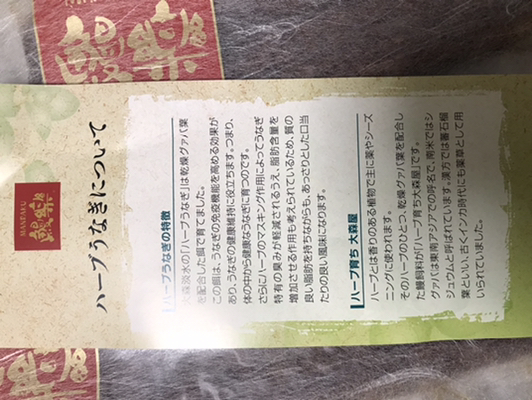 MANRAKU
鰻樂
ハーブうなぎについて
ハーブうなぎの特徴
大森淡水の「ハーブうなぎ」は乾燥グァバ葉
を配合した餌で育てました。
この餌は、うなぎの免疫機能を高める効果が
あり、うなぎの健康維持に役立ちます。つまり、
体の中から健康なうなぎに育つのです。
さらにハーブのマスキング作用によってうなぎ
特有の臭みが軽減されるうえ、脂肪含量を
増加させる作用も考えられているため、質の
良い脂肪を持ちながらも、あっさりとした口当
たりの良い風味になります。
ハーブ育ち 大森屋
ハーブとは香りのある植物で主に薬やシーズ
ニングに使われます。
そのハーブのひとつ、乾燥グァバ葉を配合し
た鰻飼料が「ハーブ育ち大森屋」です。
グァバは東南アジアでの呼名で、南米ではシ
ジュウムと呼ばれています。漢方では蕃石榴
葉といい、古くインカ時代にも薬草として用
いられていました。